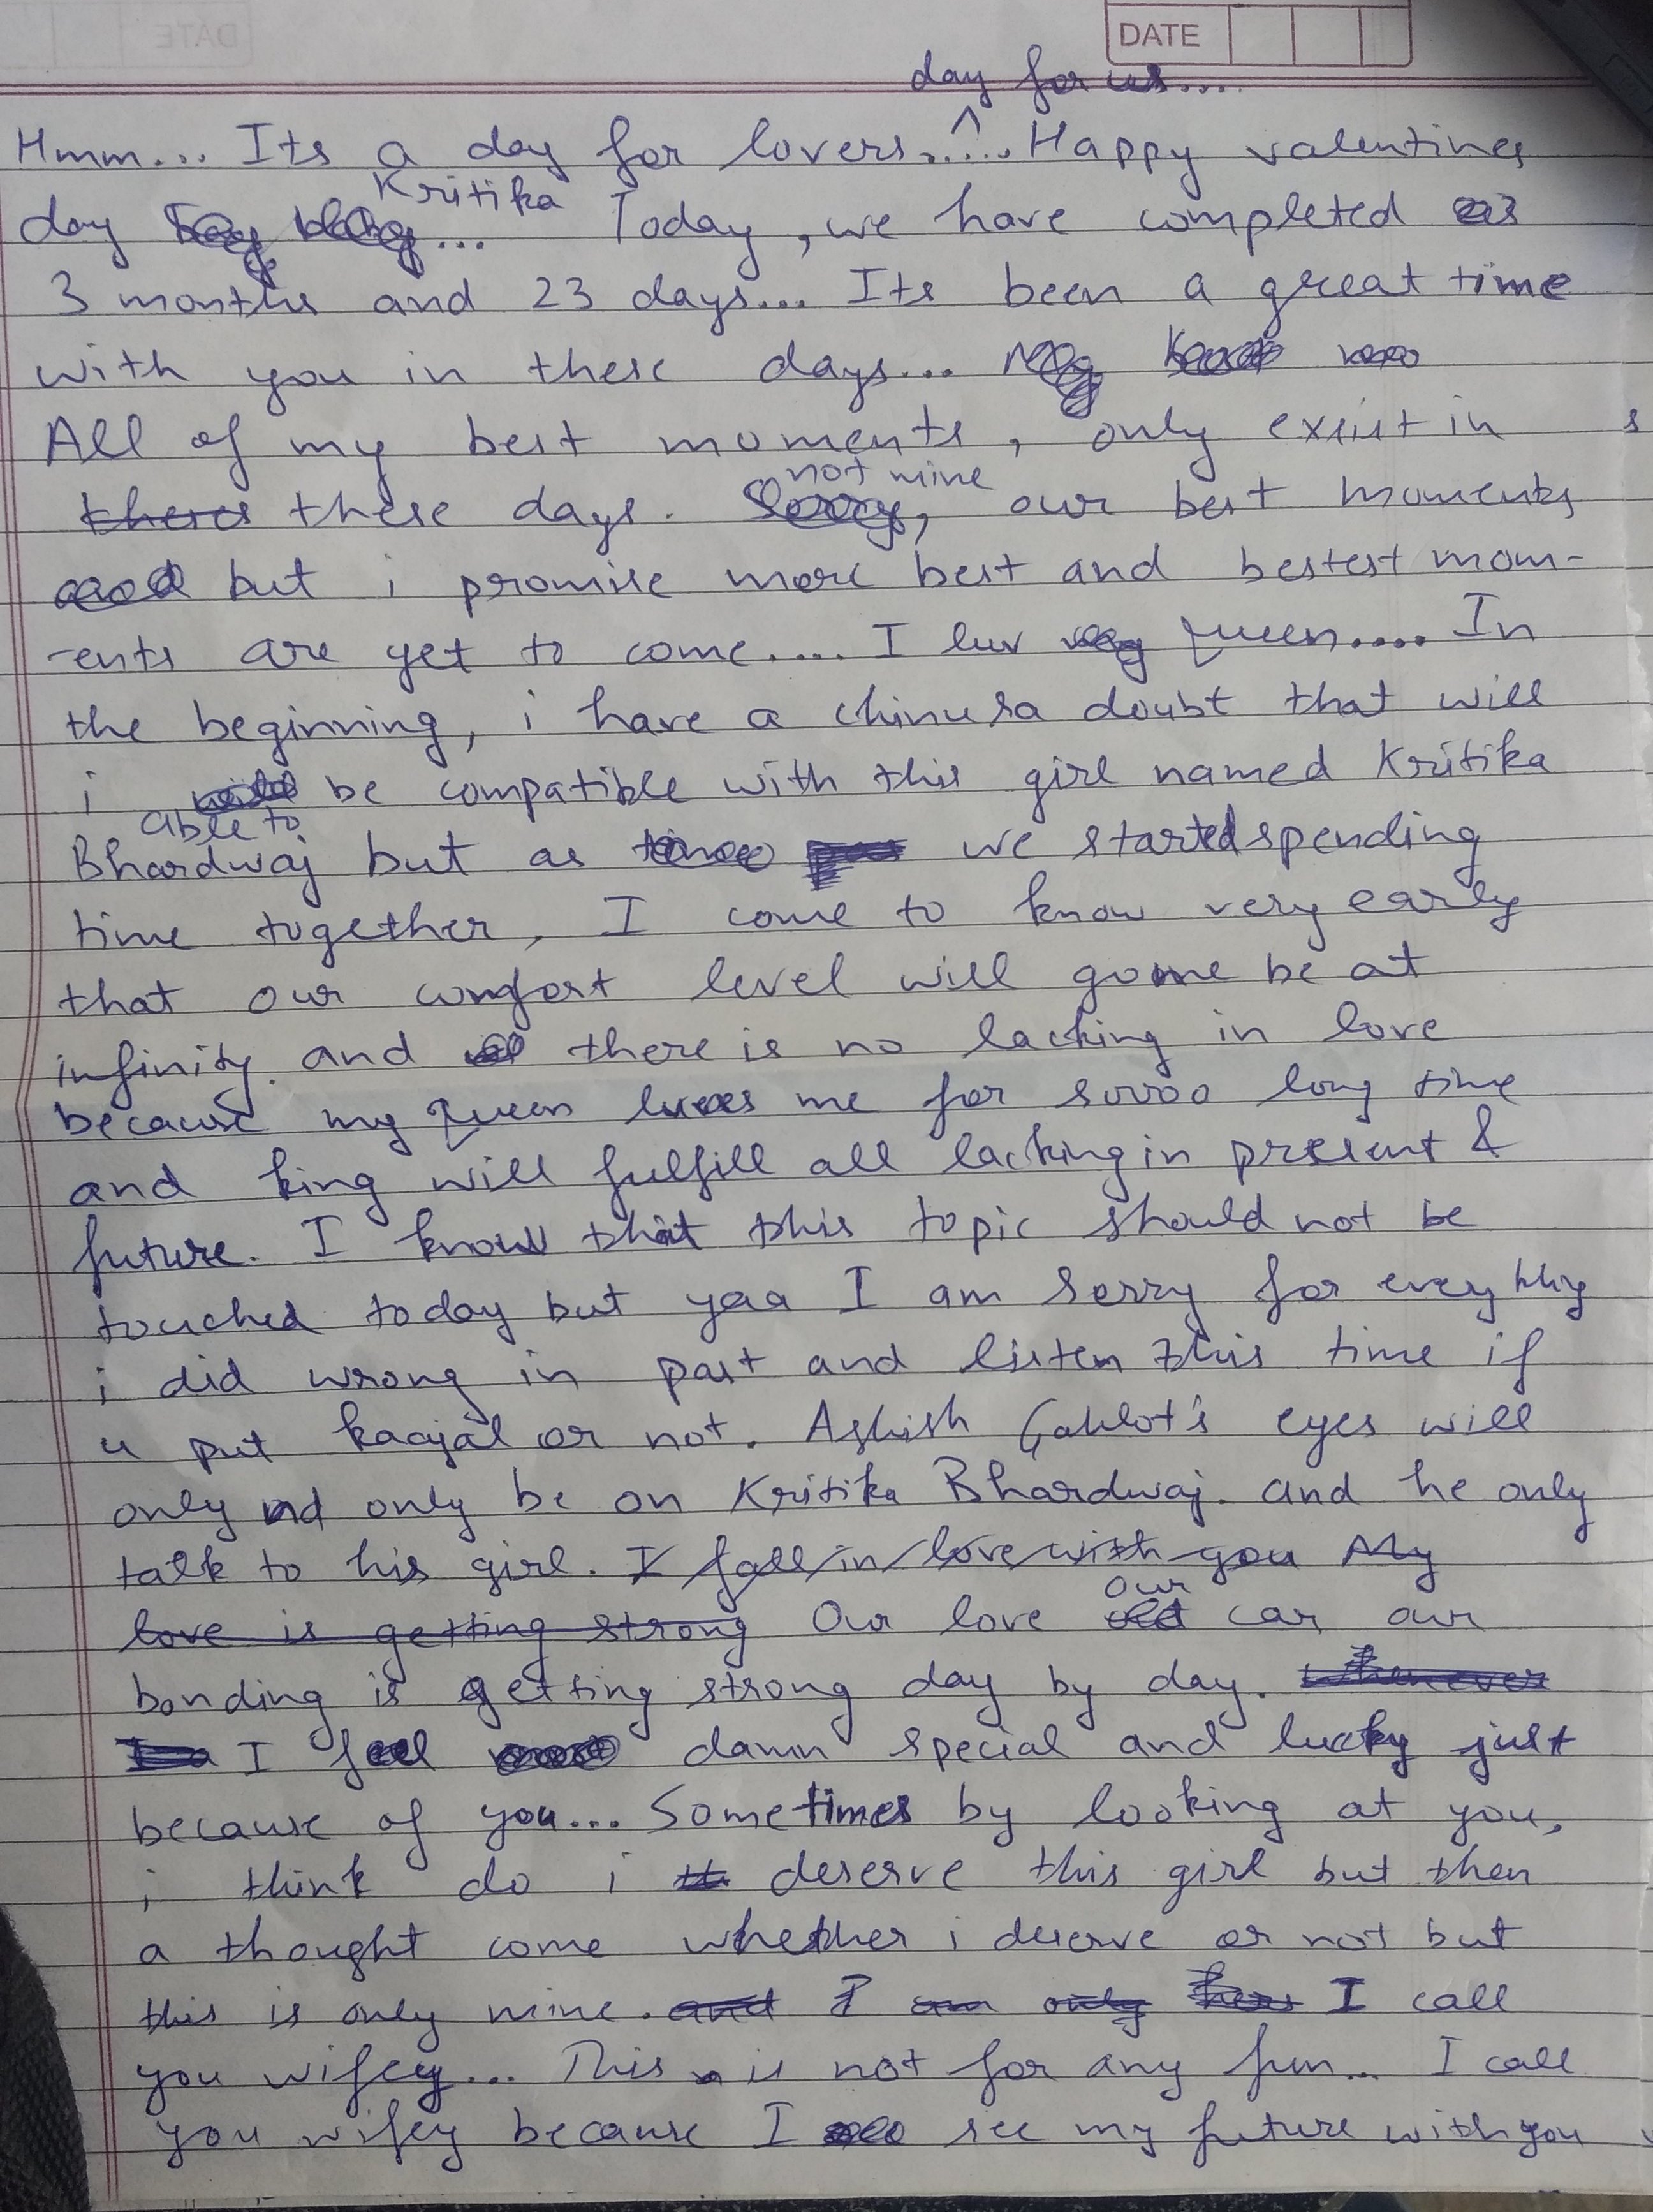 DATE
day for us....
Hmm... Its a day for lovers..... Happy valentines
day Kritika... Today, we have completed
3 months and 23 days... Its been a great time
with you in these days...
All of my best moments, only exist in
these days. not mine, our best moments
but i promise more best and bestest mom-
-ents are yet to come.... I luv queen.... In
the beginning, i have a chinu sa doubt that will
i able to be compatible with this girl named Kritika
Bhardwaj but as we started spending
time together, I come to know very early
that our comfort level will gonne be at
infinity. and there is no lacking in love
because my queen loves me for soooo long time
and king will fulfill all lacking in present &
future. I know that this topic should not be
touched today but yaa I am sorry for everything
i did wrong in past and listen this time if
u put kaajal or not. Ashish Gahlot's eyes will
only nd only be on Kritika Bhardwaj. and he only
talk to his girl. I fall in love with you My
love is getting strong Our love our car our
bonding is getting strong day by day. Whenever
I feel damn special and lucky just
because of you... Sometimes by looking at you,
i think do i deserve this girl but then
a thought come whether i deserve or not but
this is only mine. and I am only hers I call
you wifey... This is not for any fun... I call
you wifey because I see my future with you